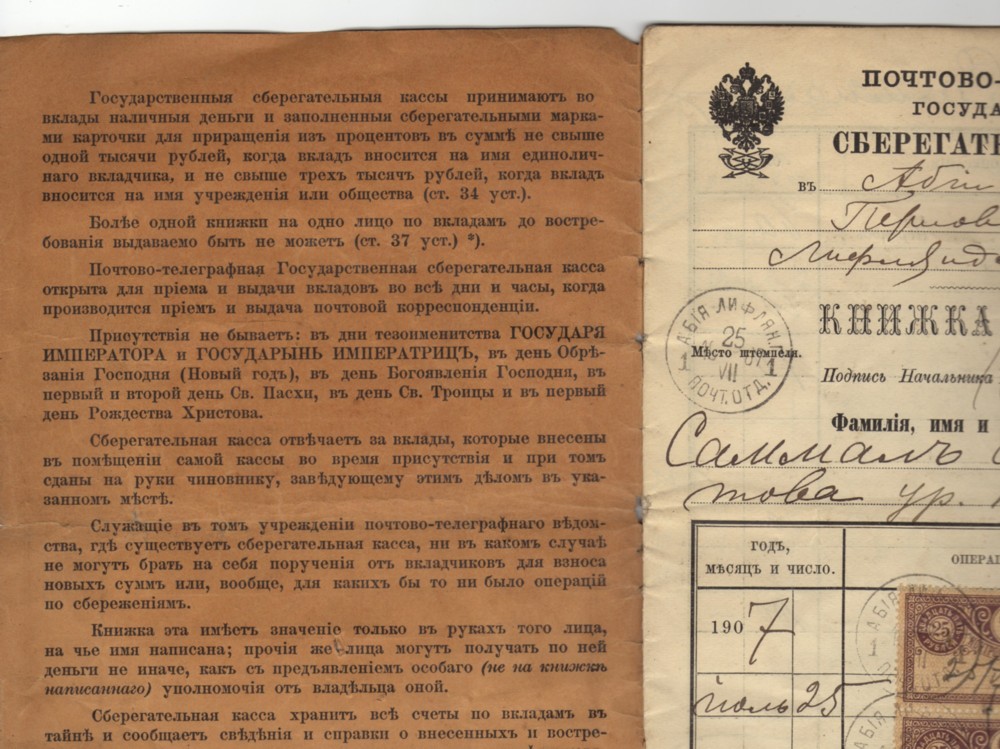 Государственныя сберегательныя кассы принимаютъ во
вклады наличныя деньги и заполненныя сберегательными марка-
ми карточки для приращенія изъ процентовъ въ суммѣ не свыше
одной тысячи рублей, когда вкладъ вносится на имя единолич-
наго вкладчика, и не свыше трехъ тысячъ рублей, когда вкладъ
вносится на имя учрежденія или общества (ст. 34 уст.).
Болѣе одной книжки на одно лицо по вкладамъ до востре-
бованія выдаваемо быть не можетъ (ст. 37 уст.) *).
Почтово-телеграфная Государственная сберегательная касса
открыта для пріема и выдачи вкладовъ во всѣ дни и часы, когда
производится пріемъ и выдача почтовой корреспонденціи.
Присутствія не бываетъ: въ дни тезоименитства ГОСУДАРЯ
ИМПЕРАТОРА и ГОСУДАРЫНЬ ИМПЕРАТРИЦЪ, въ день Обрѣ-
занія Господня (Новый годъ), въ день Богоявленія Господня, въ
первый и второй день Св. Пасхи, въ день Св. Троицы и въ первый
день Рождества Христова.
Сберегательная касса отвѣчаетъ за вклады, которые внесены
въ помѣщеніи самой кассы во время присутствія и при томъ
сданы на руки чиновнику, завѣдующему этимъ дѣломъ въ ука-
занномъ мѣстѣ.
Служащіе въ томъ учрежденіи почтово-телеграфнаго вѣдом-
ства, гдѣ существуетъ сберегательная касса, ни въ какомъ случаѣ
не могутъ брать на себя порученія отъ вкладчиковъ для взноса
новыхъ суммъ или, вообще, для какихъ бы то ни было операцій
по сбереженіямъ.
Книжка эта имѣетъ значеніе только въ рукахъ того лица,
на чье имя написана; прочія же лица могутъ получать по ней
деньги не иначе, какъ съ предъявленіемъ особаго (не на книжкѣ
написаннаго) уполномочія отъ владѣльца оной.
Сберегательная касса хранитъ всѣ счеты по вкладамъ въ
тайнѣ и сообщаетъ свѣдѣнія и справки о внесенныхъ и востре-
ПОЧТОВО-
ГОСУДА
СБЕРЕГАТЕ
въ Абіи
Пернов
Лифлянд
КНИЖКА
АБІЯ ЛИФЛЯН.
25
VII
1 1
ПОЧТ. ОТД.
Мѣсто штемпеля.
Подпись Начальника
Фамилія, имя и
Саммалъ
това ур.
ГОДЪ,
МѢСЯЦЪ И ЧИСЛО.
ОПЕРАЦ
1907
іюль 25
АБІЯ
1
25
АБІЯ